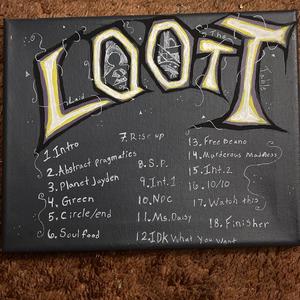 LOOTT
Laid
The
Table
1. Intro
2. Abstract pragmatics
3. Planet Jayden
4. Green
5. Circle/end
6. Soul food
7. Rise up
8. S.P.
9. Int.1
10. NPC
11. Ms. Daisy
12. IDK What You Want
13. Free beano
14. Murderous madness
15. Int.2
16. 10/10
17. Watch this
18. Finisher